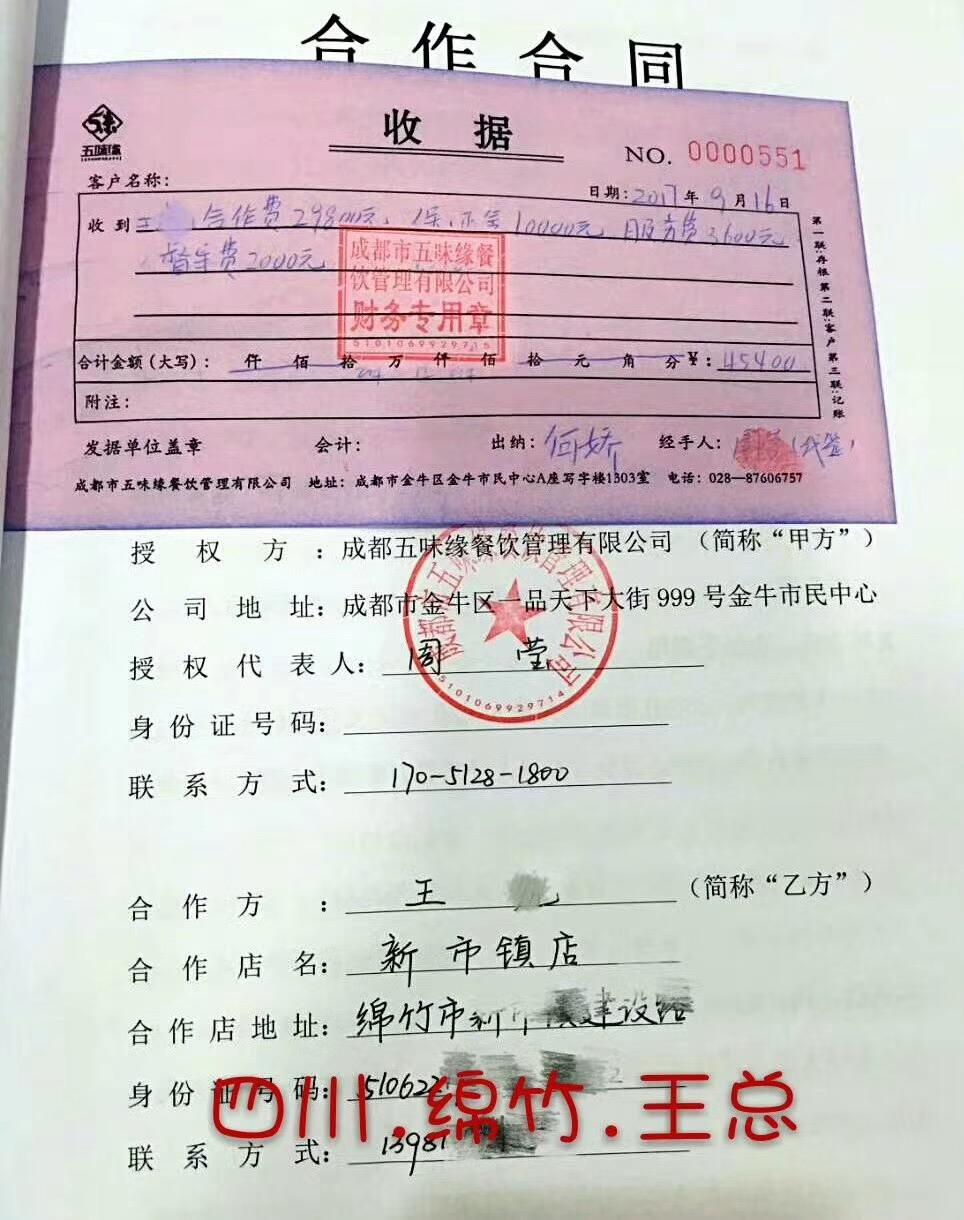 合作合同
五味缘
收据
NO. 0000551
客户名称：
日期：2017年9月16日
收到 王 合作费29800元，保证金10000元，服务费3600元
督导费2000元
成都市五味缘餐
饮管理有限公司
财务专用章
5101069929715
合计金额（大写）： 仟 佰 拾 万 仟 佰 拾 元 角 分 ¥：45400
附注：
第一联：存根 第二联：客户 第三联：记账
发据单位盖章 会计： 出纳：何娇 经手人： （代签）
成都市五味缘餐饮管理有限公司 地址：成都市金牛区金牛市民中心A座写字楼1303室 电话：028—87606757
授权方：成都五味缘餐饮管理有限公司（简称“甲方”）
公司地址：成都市金牛区一品天下大街999号金牛市民中心
授权代表人：周莹
成都市五味缘餐饮管理有限公司
5101069929714
身份证号码：
联系方式：170-5128-1800
合作方：王 （简称“乙方”）
合作店名：新市镇店
合作店地址：绵竹市新市镇建设路
身份证号码：510622
四川.绵竹.王总
联系方式：13981